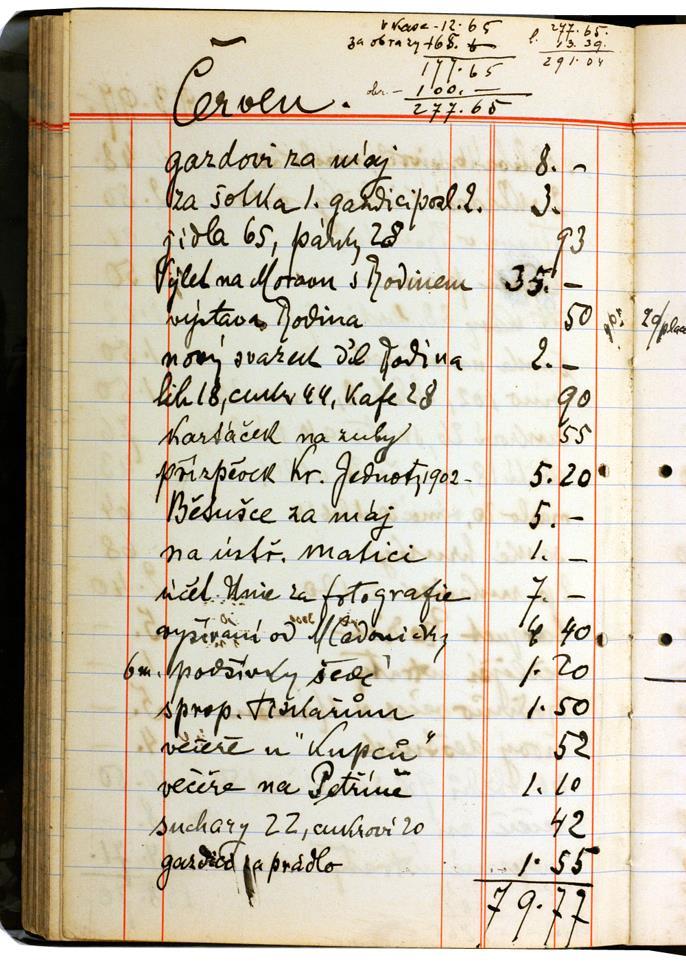 v kase - 12.65
za obrazy +165. -
177.65
obr. - 100. -
277.65
277.65.
13.39.
291.04
Červen.
gazdovi za máj 8. -
za šolka 1. gazdici posl. 2. 3.
jídla 65, párky 28 93
Výlet na Moravu s Rodinem 35. -
výstava Rodina 50
nový svazek děl Rodina 2. -
líh 18, cukr 44, Kafe 28 90
Kartáček na zuby 55
přízpěvek Kr. Jednoty 1902 - 5.20
Bětušce za máj 5. -
na ústř. matici 1. -
účet Unie za fotografie 7. -
vyšívání od 4 40
6 m. podšívky šedé 1.20
sprop. tiskařům 1.50
večeře u "Kupců" 52
večéře na Petříně 1.10
suchary 22, cukroví 20 42
gazdici za prádlo 1.55
79.77